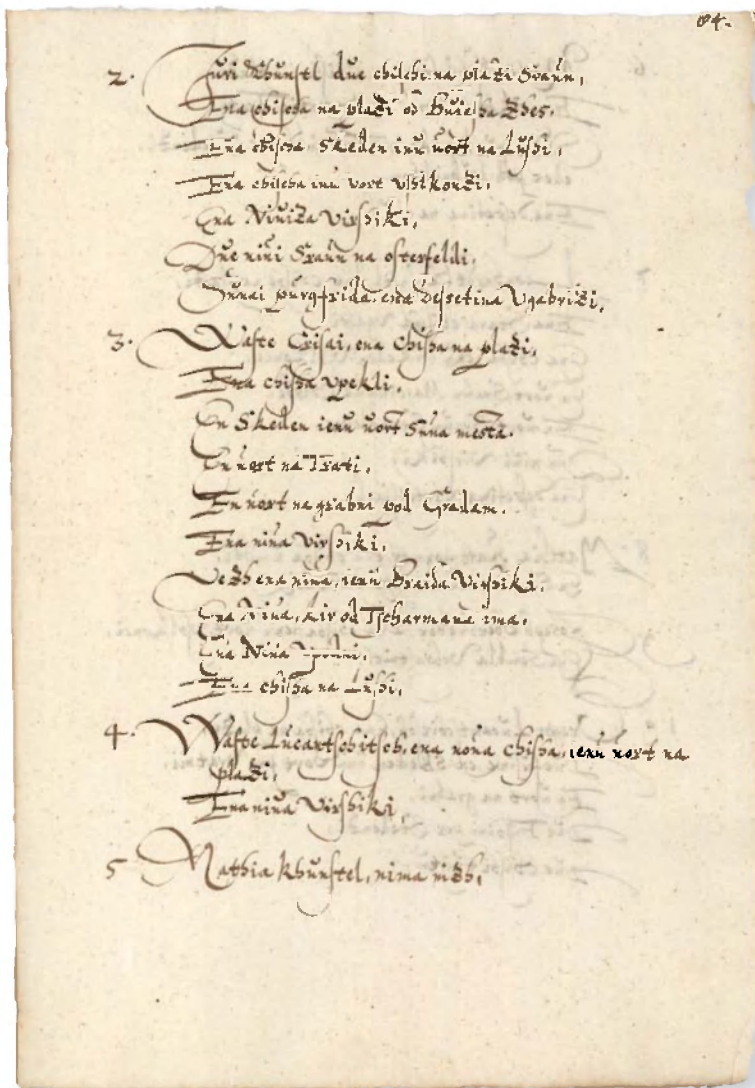 84.
2. Juri Khunstl due chischi na plazi Sraun,
Ena chischa na plazi od Buiesha Zhes.
Ena chischa Skeden inu uort na Lushi,
Ena chischa inu vort
Ena Niuiza Virshiki,
Due niui Sraun na osterfeldi,
Sunai purgfrida, ena dessetina Vgabrizi,
3. Waste Crisai, ena Chisha na plazi,
Ena chisha vpekli,
En Skeden ienu uort Suna mesta.
En uort na Trati,
En uort na grabni pod Gradam,
Ena niua Virshiki,
Vezh ena niua, ienu Braida Virshiki,
Ena Niua, kir od Tscharmana ima,
Ena Niua
Ena chisha na Lushi,
4. Waste Lucartschitsch, ena noua chisha, ienu uort na
plazi,
Ena niua Virshiki,
5 Mathia Khunstel, nima nizh,